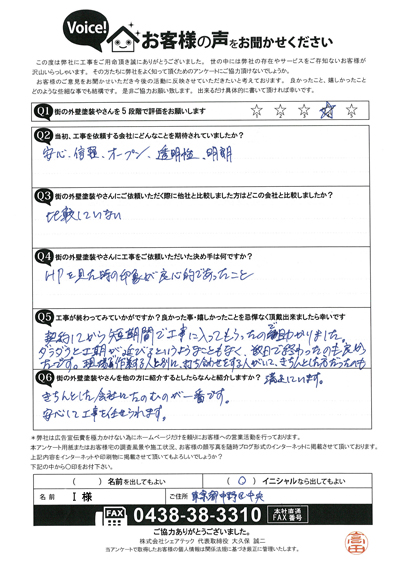 Voice!
お客様の声をお聞かせください
この度は弊社に工事をご用命頂き誠にありがとうございました。世の中には弊社の存在やサービスをご存知ないお客様が
沢山いらっしゃいます。その方たちに弊社をよく知って頂くためのアンケートにご協力頂けないでしょうか。
お客様のご意見をお聞かせいただき今後の活動に反映させていただきたいと考えております。良かったこと、嬉しかったこと
どのような些細な事でも結構です。是非ご協力お願い致します。出来るだけ具体的に書いて頂ければ幸いです。
Q1 街の外壁塗装やさんを5段階で評価をお願いします
☆ ☆ ☆ ☆ ☆
Q2 当初、工事を依頼する会社にどんなことを期待されていましたか?
安心、信頼、オープン、透明性、明朗
Q3 街の外壁塗装やさんにご依頼いただく際に他社と比較しました方はどこの会社と比較しましたか?
比較していない
Q4 街の外壁塗装やさんに工事をご依頼いただいた決め手は何ですか?
HPを見た時の印象が良心的であったこと
Q5 工事が終わってみていかがですか?良かった事・嬉しかったことを忌憚なく頂戴出来ましたら幸いです
契約してから短期間で工事に入ってもらったので助かりました。
ダラダラと工期が延びるというようなこともなく、数日で終わったのも良かっ
たです。現場で作業する人とは別に、打ち合わせをする人がいて、きちんとした方だったのも
満足しています。
Q6 街の外壁塗装やさんを他の方に紹介するとしたらなんと紹介しますか?
きちんとした会社にたのむのが一番です。
安心して工事を任せられます。
*弊社は広告宣伝費を極力かけない為にホームページだけを頼りにお客様への営業活動を行っております。
本アンケート用紙またはお宅での調査風景や施工状況、お客様の顔写真を随時ブログ形式のインターネットに掲載させて頂いております。
上記内容をインターネットや印刷物に掲載させて頂いてもよろしいでしょうか?
下記の中から〇印をお付下さい。
( ) 名前を出してもよい ( 〇 ) イニシャルなら出してもよい
名前 I 様 ご住所 東京都中野区中央
FAX 0438-38-3310 本社直通 FAX番号
ご協力ありがとうございました。
株式会社シェアテック 代表取締役 大久保 誠二
当アンケートで取得したお客様の個人情報は関係法規に基づき厳正に管理いたします。